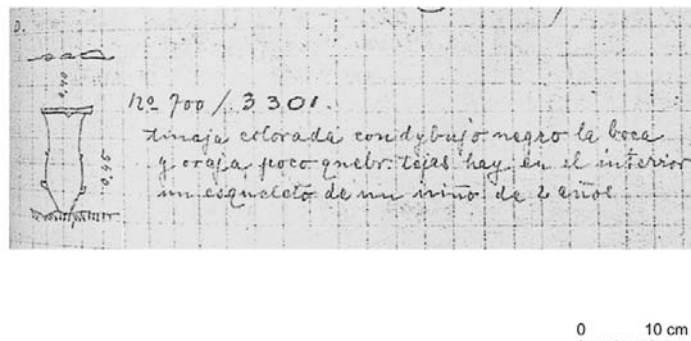 D.
0,40
0,45
nº 700 / 3301.
tinaja colorada con dybujo negro la boca
y oraja poco quebr. tejas hay en el interior
un esqueleto de un niño de 2 años
0 10 cm